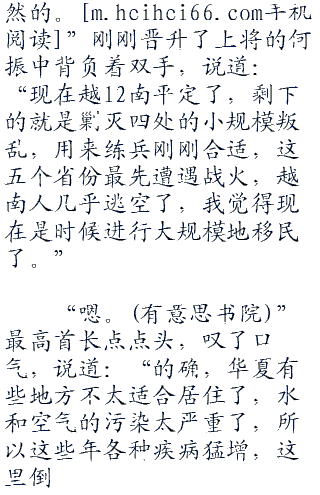 然的。[m.hcihci66.com手机
阅读]”刚刚晋升了上将的何
振中背负着双手，说道：
“现在越12南平定了，剩下
的就是剿灭四处的小规模叛
乱，用来练兵刚刚合适，这
五个省份最先遭遇战火，越
南人几乎逃空了，我觉得现
在是时候进行大规模地移民
了。”
“嗯。(有意思书院)”
最高首长点点头，叹了口
气，说道：“的确，华夏有
些地方不太适合居住了，水
和空气的污染太严重了，所
以这些年各种疾病猛增，这
里倒